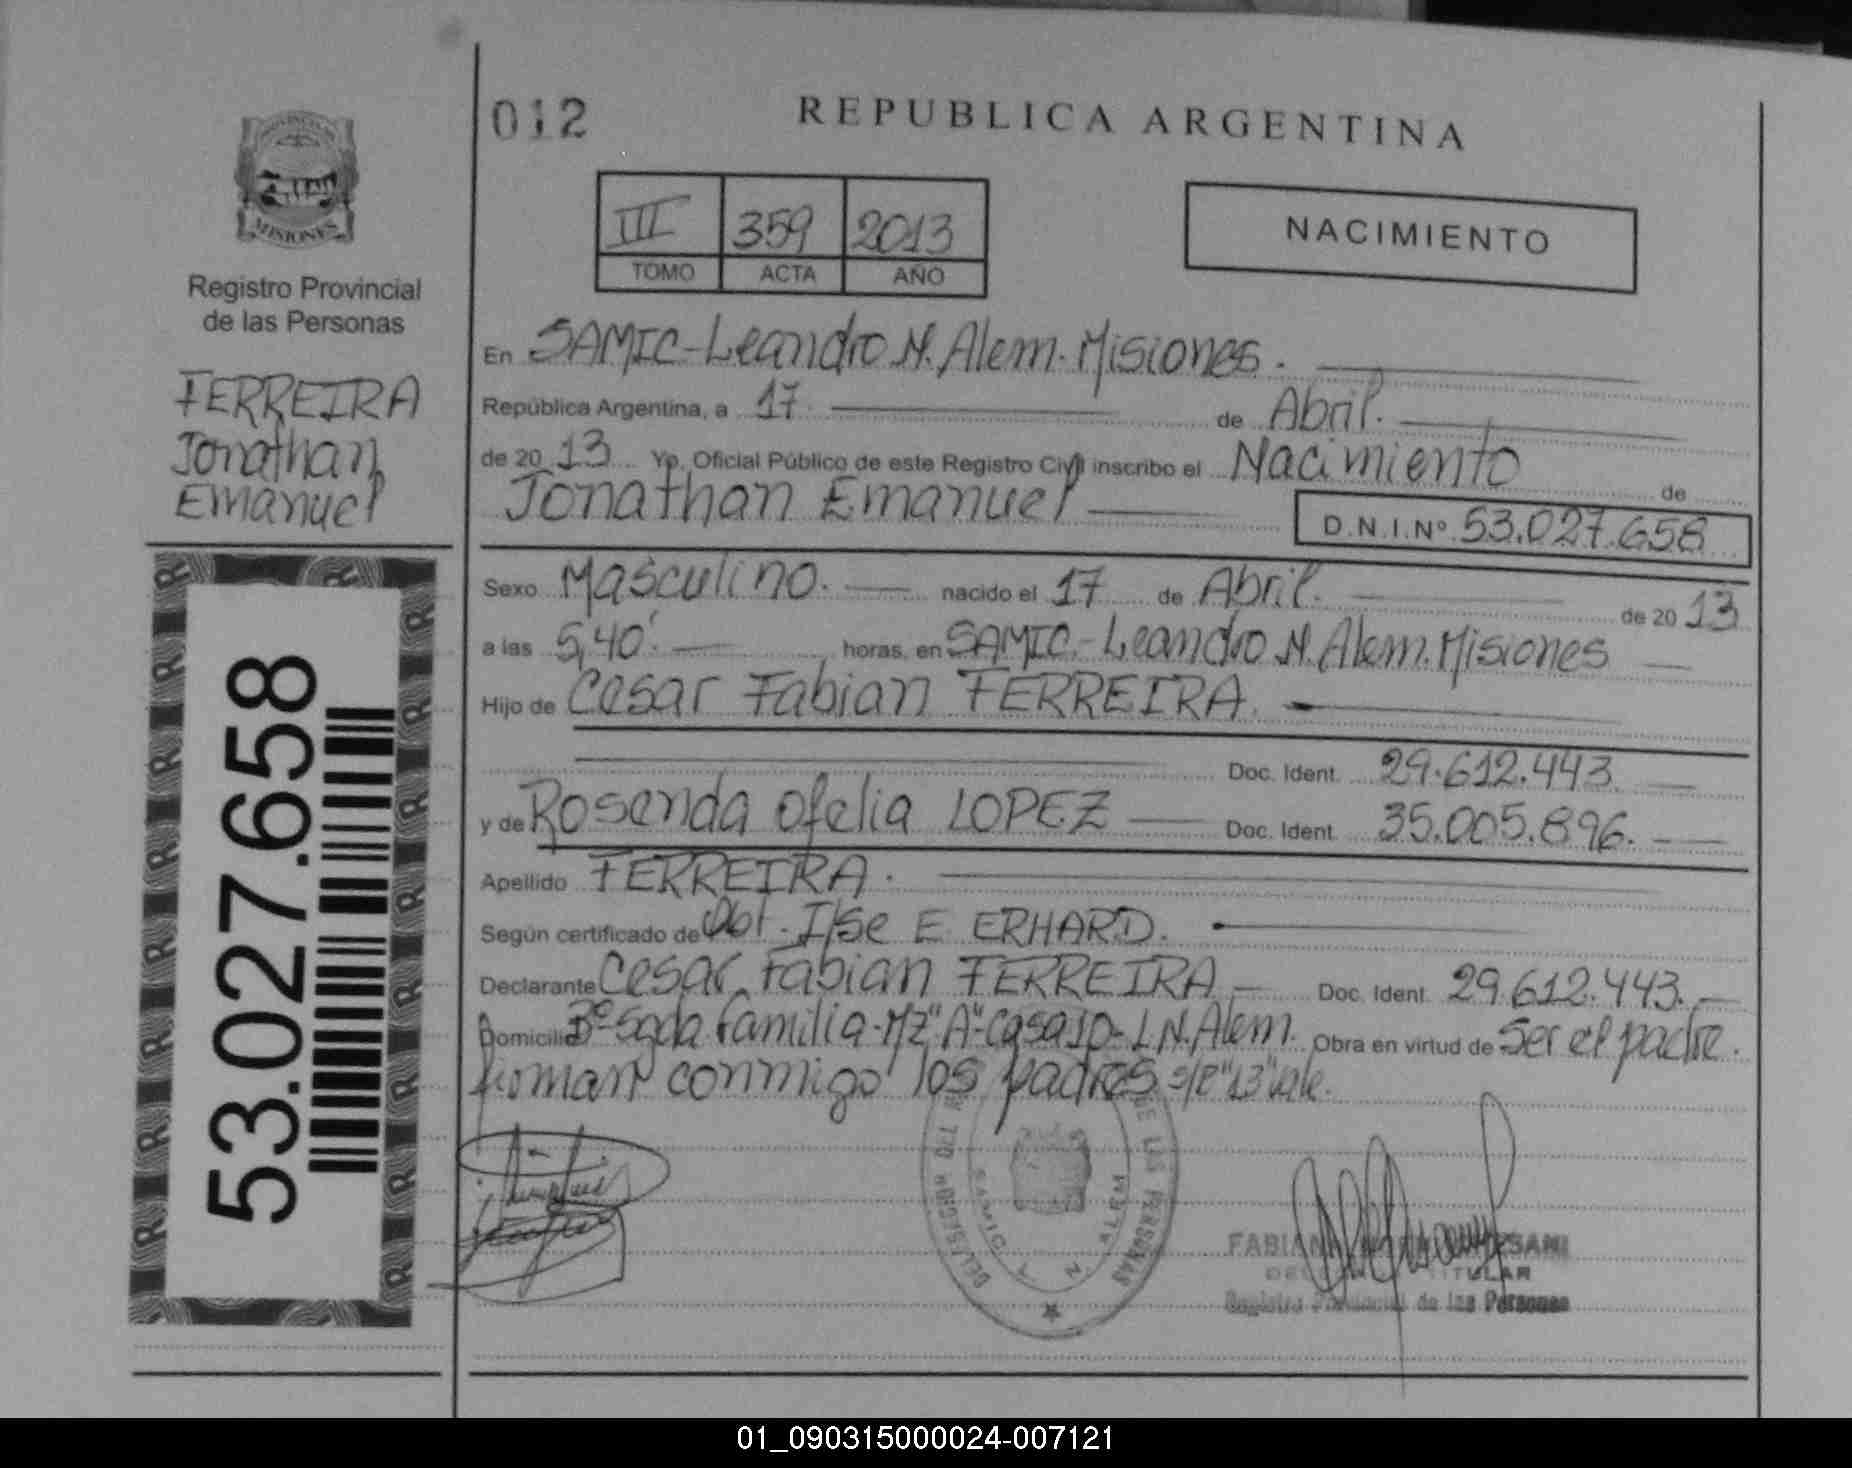 012
REPUBLICA ARGENTINA
MISIONES
Registro Provincial
de las Personas
FERREIRA
Jonathan
Emanuel
53.027.658
III 359 2013
TOMO ACTA AÑO
NACIMIENTO
En SAMIC-Leandro N. Alem. Misiones.
República Argentina, a 17. de Abril.
de 20 13 Yo, Oficial Público de este Registro Civil inscribo el Nacimiento de
Jonathan Emanuel D.N.I.Nº 53.027.658
Sexo Masculino. nacido el 17 de Abril. de 20 13
a las 5,40'. horas, en SAMIC.-Leandro N. Alem. Misiones
Hijo de Cesar Fabian FERREIRA.
Doc. Ident. 29.612.443.
y de Rosenda Ofelia LOPEZ Doc. Ident. 35.005.896.
Apellido FERREIRA.
Según certificado de Obt. Ilse E. ERHARD.
Declarante Cesar Fabian FERREIRA Doc. Ident. 29.612.443.
Domicilio Bº Sgda familia-Mz"A"-Casa 10-L.N.Alem. Obra en virtud de Ser el padre.
firman conmigo los padres. s/r "13" vale.
DE LAS PERSONAS
SAMIC
N ALEM
TITULAR
Registro Provincial de las Personas
01_090315000024-007121